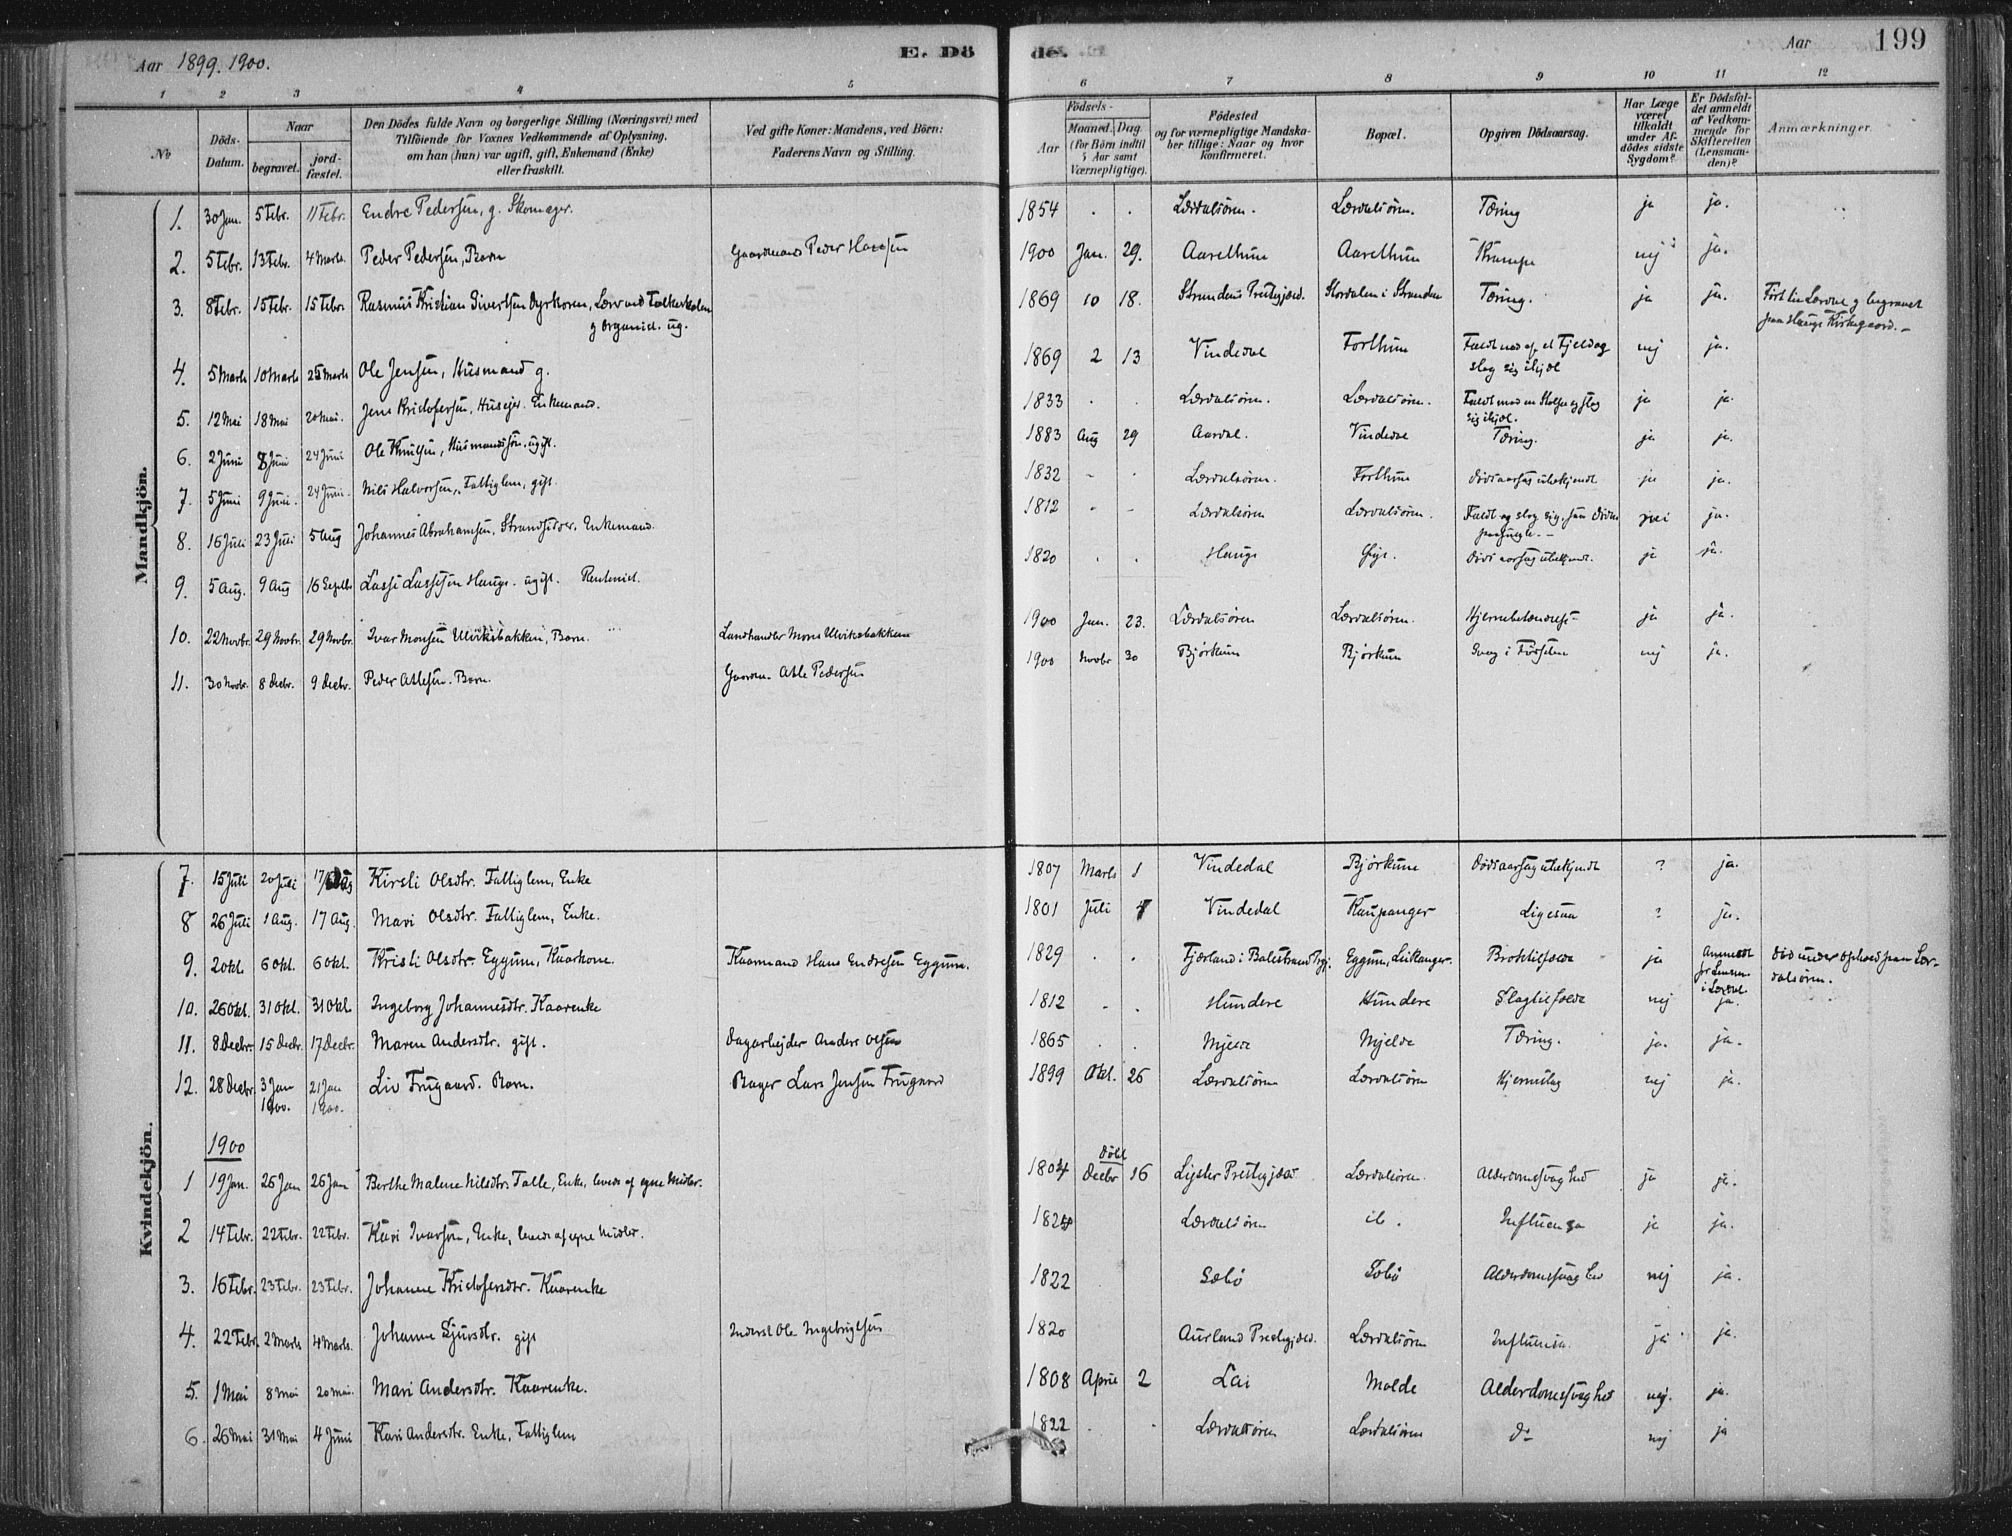 Aar 1899. 1900.
E. Döde.
Aar
199
1 2 3 4 5 6 7 8 9 10 11 12
No
Döds-Datum.
Naar
begravet.
jordfæstet.
Den Dödes fulde Navn og borgerlige Stilling (Næringsvei) med
Tilföiende for Voxnes Vedkommende af Oplysning,
om han (hun) var ugift, gift, Enkemand (Enke)
eller fraskilt.
Ved gifte Koner: Mandens, ved Börn:
Faderens Navn og Stilling.
Födsels-
Aar
Maaned. Dag
(for Börn indtil
5 Aar samt
Værnepligtige).
Födested
og for værnepligtige Mandskaber
tillige: Naar og hvor
konfirmeret.
Bopæl.
Opgiven Dödsaarsag.
Har Læge
været
tilkaldt
under Afdödes
sidste
Sygdom?
Er Dödsfaldet
anmeldt
af Vedkommende
for
Skifteretten
(Lensmanden)?
Anmærkninger.
Mandkjön.
1. 30 Jan. 5 Febr. 11 Febr. Endre Pedersen, g. Skomager. 1854 . . Lærdalsören. Lærdalsören. Tæring ja ja.
2. 5 Febr. 13 Febr. 4 Marts. Peder Pedersen, Barn Gaardmand Peder Hansen 1900 Jan. 29. Aarethun Aarethun Krampe nej ja.
3. 8 Febr. 15 Febr. 15 Febr. Rasmus Kristian Sivertsen Dyrkoren, Lærer ved Folkeskolen
g Organist. ug. 1869 10 18. Strandens Prestegjæld. Stordalen i Stranden Tæring. ja ja. Fört til Lærdal g begravet
paa Haugs Kirkegaard. –
4. 5 Marts 10 Marts 25 Marts Ole Jensen, Husmand g. 1869 2 13 Vindedal Forthun Faldt ned af et Fjeld og
slog sig ihjel nej ja.
5. 12 Mai 18 Mai 20 Mai. Jens Kristofersen, Husejer. Enkemand. 1833 . . Lærdalsören. Lærdalsören. Faldt med en Stolpe og slog
sig ihjel. ja ja.
6. 2 Juni 8 Juni 24 Juni Ole Knutsen, Husmandssön. ugift. 1883 Aug 29 Aardal. Vindedal Tæring. ja ja.
7. 5 Juni 9 Juni. 24 Juni. Nils Halvorsen, Fattiglem, gift. 1832 – . Lærdalsören. Forthun Dödsaarsag ubekjendt ja ja.
8. 16 Juli 23 Juli 5 Aug Johannes Abrahamsen, Strandsidder. Enkemand. 1812 – – Lærdalsören Lærdalsören. Faldt og slog sig, ja.
9. 5 Aug. 9 Aug 16 Septbr. Lasse Lassesen Hauge. ugift. Rentenist. 1820 . . Hauge Öye. Dödsaarsag ubekjendt. ja ja.
10. 22 Novbr. 29 Novbr. 29 Novbr. Ivar Monsen Ulviksbakken, Barn. Landhandler Mons Ulviksbakken 1900 Jan. 23. Lærdalsören Lærdalsören. Hjernebetændelse ja ja.
11. 30 Novbr. 8 Decbr. 9 Decbr. Peder Atlesen. Barn. Gaardm. Atle Pedersen 1900 Novbr 30 Björkum Björkum Svag i Födselen nej ja.
Kvindekjön.
7. 15 Juli 20 Juli 17 Aug Kirsti Olsdtr. Fattiglem, Enke 1807 Marts 1 Vindedal Björkum Dödsaarsag ubekjendt ? ja.
8 26 Juli 1 Aug. 17 Aug. Mari Olsdtr. Fattiglem, Enke. 1801 Juli 4 Vindedal Kaupanger Ligesaa ? ja.
9. 2 Okt. 6 Okt. 6 Okt. Kristi Olsdtr. Eggum, Kaarkone. Kaarmand Hans Endresen Eggum. 1829 . . Fjærland i Balestrand Prgj. Eggum, Leikanger. Broktilfælde ja Anmeldt
for Lensm.
i Lærdal Död under Ophold paa Lærdalsören.
10. 26 Okt. 31 Okt. 31 Okt. Ingeborg Johannesdtr. Kaarenke 1812 . . Hundere Hundere Slagtilfælde nej ja.
11. 8 Decbr. 15 Decbr. 17 Decbr. Maren Andersdtr. gift. Dagarbejder Anders Olsen 1865 . . Mjelde Mjelde Tæring. ja. ja.
12. 28 Decbr. 3 Jan
1900. 21 Jan
1900. Liv Frugaard. Barn. Bager Lars Jensen Frugaard 1899 Okt. 26 Lærdalsören Lærdalsören Hjerneslag nej ja.
1900
1 19 Jan. 26 Jan 26 Jan Berthe Malene Nilsdtr. Talle, Enke, leved af egne Midler. 1804 döbt
Decbr 16 Lyster Prestegjæld Lærdalsören. Alderdomssvaghed ja ja.
2 14 Febr. 22 Febr. 22 Febr. Kari Ivarsön, Enke, leved af egne Midler. Lærdalsören ib. Influensa ja ja.
3. 16 Febr. 23 Febr. 23 Febr. Johanne Kristofersdtr. Kaarenke 1822 Sæbö Sæbö Alderdomssvaghed nej ja.
4. 22 Febr. 2 Marts 4 Marts. Johanne Sjursdtr. gift Inderst Ole Ingebrigtsen 1820 Aurland Prestegjæld. Lærdalsören Influensa. ja ja.
5. 1 Mai 8 Mai 20 Mai. Mari Andersdtr. Kaarenke. 1808 April 2 Lai Molde Alderdomssvaghed nej. ja.
6. 26 Mai 31 Mai 4 Juni Kari Andersdtr. Enke, Fattiglem 1822 . . Lærdalsören Lærdalsören do nej ja